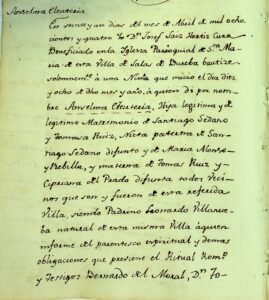 Anselma Eleuteria
En veinte y un dias del mes de Abril de mil ocho-
cientos y quatro Yo Dn. Josef Saiz Hortiz Cura
Beneficiado en la Iglesia Parroquial de Sta. Ma-
ria de esta Villa de Salas de Bureba bautize
solemnemte. à una Niña que nació el dia diez
y ocho de dho mes y año, à quien di por nom-
bre Anselma Eleuteria, Hija legitima y de
legitimo Matrimonio de Santiago Sedano
y Tomasa Ruiz, Nieta paterna de San-
tiago Sedano difunto y de Maria Alonso
y Rebilla, y materna de Tomas Ruiz y
Cipriana del Prado difunta todos Veci-
nos que son y fueron de esta referida
Villa, siendo Padrino Leonardo Villanue-
ba natural de esta misma Villa à quien
informe del parentesco espiritual y demas
obligaciones que previene el Ritual Romo.
y Testigos Bernardo del Moral, Dn. Jo-